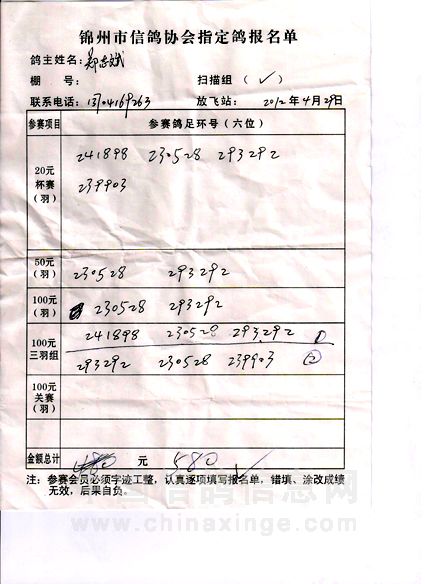 锦州市信鸽协会指定鸽报名单
鸽主姓名：郑志斌
棚 号： 扫描组（✓）
联系电话：13704169263 放飞站：2012年4月29日
参赛项目 参赛鸽足环号（六位）
20元
杯赛
（羽）
241898 230528 293292
239903
50元
（羽）
230528 293292
100元
（羽）
230528 293292
100元
三羽组
241898 230528 293292 ①
293292 230528 239903 ②
100元
关赛
（羽）
金额总计 元 580 ✓
注：参赛会员必须字迹工整，认真逐项填写报名单，错填、涂改成绩
无效，后果自负。
中国信鸽信息网
www.chinaxinge.com